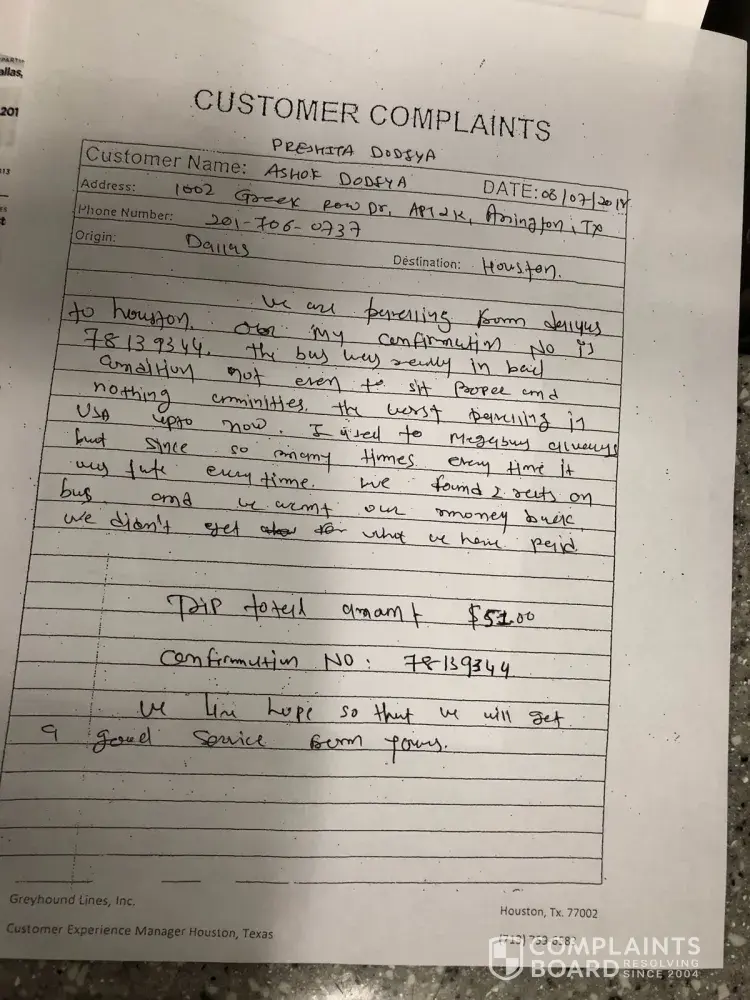 PARTI
allas,
201
CUSTOMER COMPLAINTS
PRESHITA DODIYA
Customer Name: ASHOK DODIYA DATE: 08/07/201
Address: 1002 Greek Row Dr, APT 2K, Arington, TX
Phone Number: 201-706-0737
Origin: Dallas Destination: Houston.
We are from
to houston. My confirmation No is
78139344. The bus was really in bad
condition not even to sit proper and
nothing the worst in
USA upto now. I used to Megabus always
but since so many times every time it
was every time. We found 2 on
bus and we want our money back
we didn't get for what we have paid.
total amamt $51.00
Confirmation NO: 78139344
We hope so that we will get
a good Service yours.
Greyhound Lines, Inc.
Customer Experience Manager Houston, Texas
Houston, Tx. 77002
(713)
COMPLAINTS
BOARD RESOLVING SINCE 2004